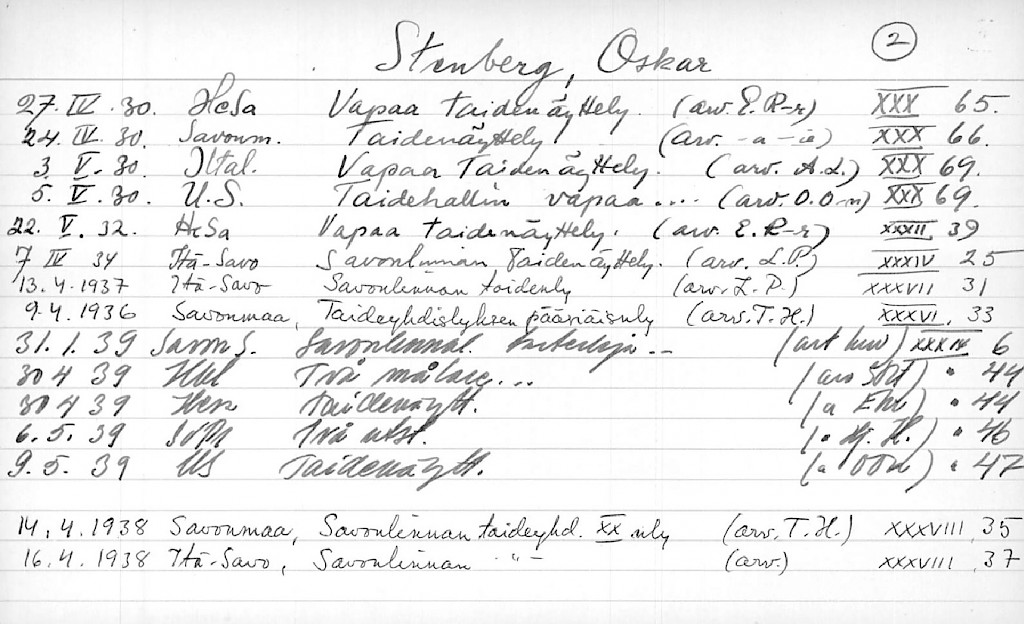 Stenberg, Oskar
2
27. IV. 30. HeSa Vapaa taidenäyttely. (arv. E. R-r) XXX 65.
24. IV. 30. Savonm. Taidenäyttely (arv. -a -ia) XXX 66.
3. V. 30. Iltal. Vapaa Taidenäyttely. (arv. A.L.) XXX 69.
5. V. 30. U.S. Taidehallin vapaa .... (arv. O.O-n) XXX 69.
22. V. 32. HeSa Vapaa taidenäyttely. (arv. E. R-r) XXXII, 39
7 IV 34 Itä-Savo Savonlinnan Taidenäyttely. (arv. L.P.) XXXIV 25
13.4.1937 Itä-Savo Savonlinnan taidenly (arv. L.P.) XXXVII 31
9.4.1936 Savonmaa, Taideyhdistyksen pääsiäisnly (arv. T.H.) XXXVI, 33
31.1.39 Savon S. Savonlinnal. 6
30 4 39 Hbl Två målare... " 44
30 4 39 taidenäytt. " 44
6.5.39 Två utst. " 46
9.5.39 US Taidenäytt. " 47
14.4.1938 Savonmaa, Savonlinnan taideyhd. XX nly (arv. T.H.) XXXVIII, 35
16.4.1938 Itä-Savo, Savonlinnan -"- (arv.) XXXVIII, 37